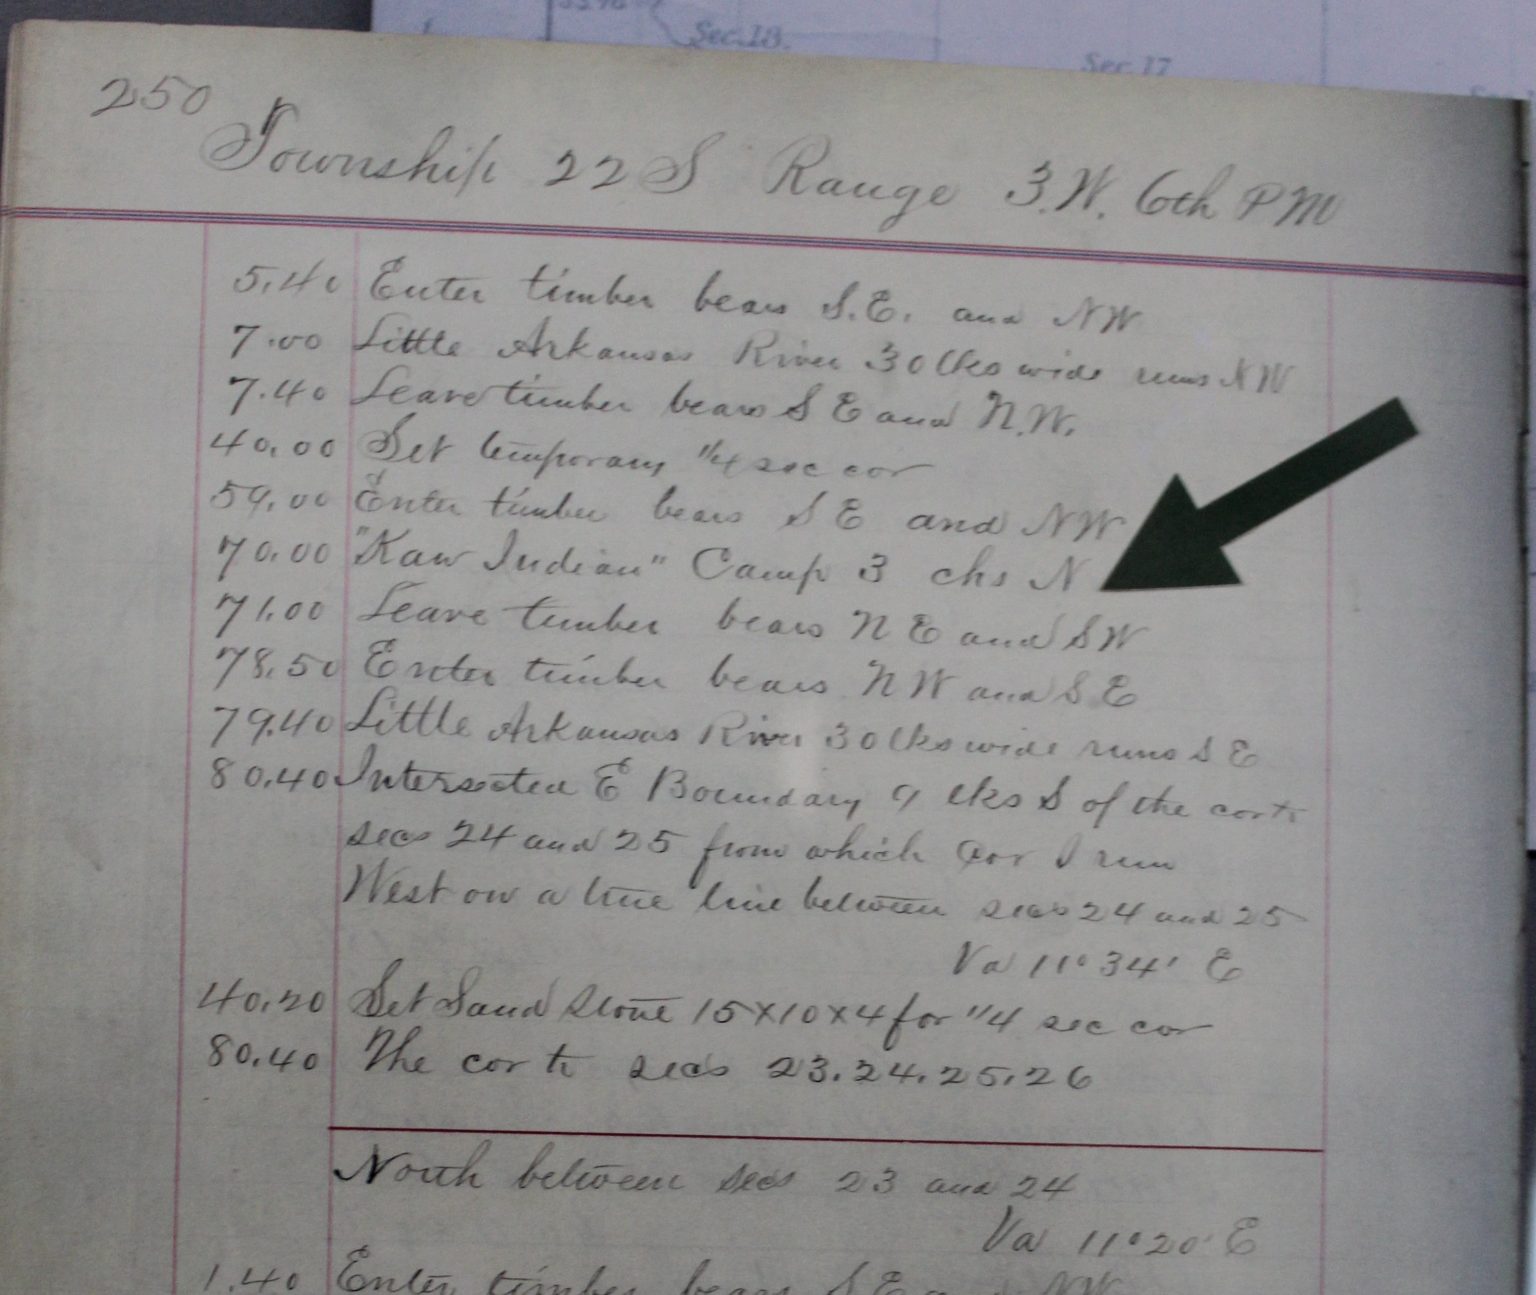 Sec. 18.
Sec 17
250
Township 22 S Range 3.W. 6th PM
5.40 Enter timber bears S.E. and NW
7.00 Little Arkansas River 30 lks wide runs NW
7.40 Leave timber bears S E and N.W.
40.00 Set temporary 1/4 sec cor
59.00 Enter timber bears S E and NW
70.00 "Kaw Indian" Camp 3 chs N
71.00 Leave timber bears N E and S W
78.50 Enter timber bears N W and S E
79.40 Little Arkansas River 30 lks wide runs S E
80.40 Intersected E Boundary 9 lks S of the cor to
secs 24 and 25 from which Cor I run
West on a true line between secs 24 and 25
Va 11° 34' E
40.20 Set Sand Stone 15x10x4 for 1/4 sec cor
80.40 The cor to secs 23.24.25.26
North between secs 23 and 24
Va 11° 20' E
1.40 Enter timber bears S E and NW